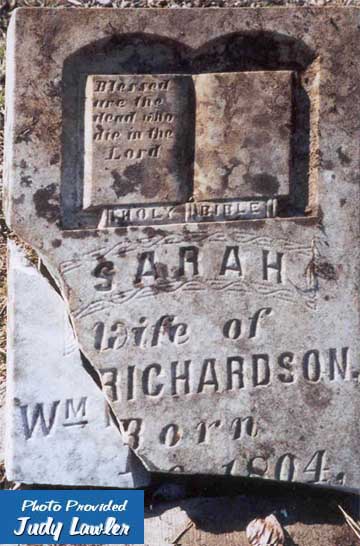 Blessed
are the
dead who
die in the
Lord
HOLY BIBLE
SARAH
Wife of
Wᴹ RICHARDSON.
Born
1804.
Photo Provided
Judy Lawler